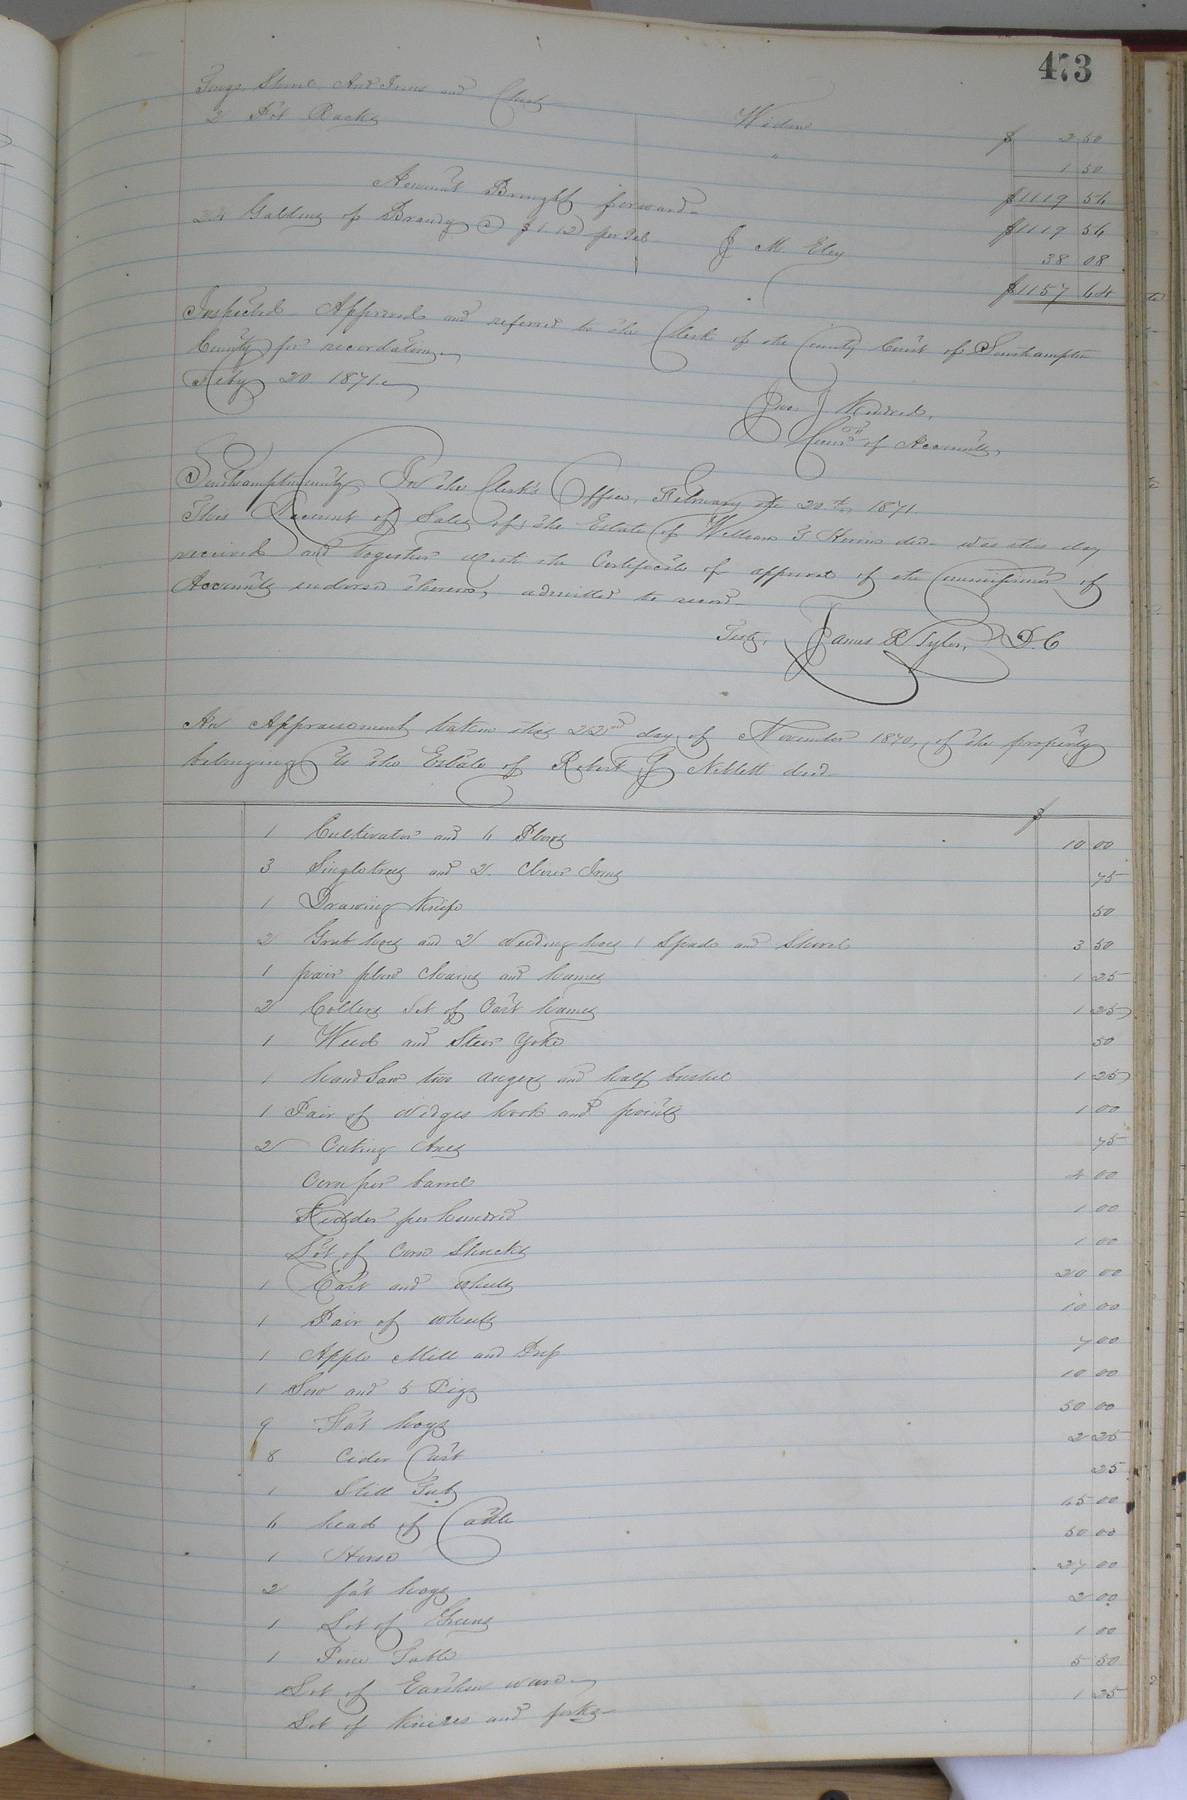 473
Tongs, Shovel And Irons and Widow $ 2 50
2 Pot Racks " 1 50
$1119 56
Amount Brought forward $1119 56
34 Gallons of Brandy @ $1.12 per Gal J M Eley 38 08
$1157 64
Inspected Approved and referred to the Clerk of the County Court of Southampton
County for recordation
Feby 20 1871.
Jno. J Kindred,
Comr of Accounts,
Southampton County In the Clerk's Office, February the 20th 1871.
This Account of Sales of the Estate of William G decd. was this day
received and together with the Certificate of approval of the Commissioner of
Accounts endorsed thereon, admitted to record
Teste, James R Tyler, D.C
An Appraisement taken this 22nd day of November 1870, of the property
belonging to the Estate of Robert J Niblett decd.
$
1 Cultivator and 4 Plows 10 00
3 Singletrees and 2 Clives Irons 75
1 Drawing Knife 50
2 Grub hoes and 2 Weeding hoes 1 Spade and Shovel 3 50
1 pair plow chains and hames 1 25
2 Collers Set of Cart hames 1 25
1 and Steer Yoke 50
1 hand Saw two augers and half bushel 1 25
1 Pair of wedges hook and points 1 00
2 Cuting Axes 75
Corn per barrel 4 00
Fodder per hundred 1 00
Lot of Corn Shucks 1 00
1 Cart and wheels 20 00
1 Pair of wheels 10 00
1 Apple Mill and Press 7 00
1 Sow and 5 Pigs 10 00
9 Fat hogs 50 00
8 Cider Cast 2 25
1 Still Tub 25
4 head of Cattle 45 00
1 Horse 50 00
2 fat hogs 27 00
1 Lot of 2 00
1 Pine Table 1 00
Lot of Earthen ware 5 50
Lot of Knives and forks 1 25